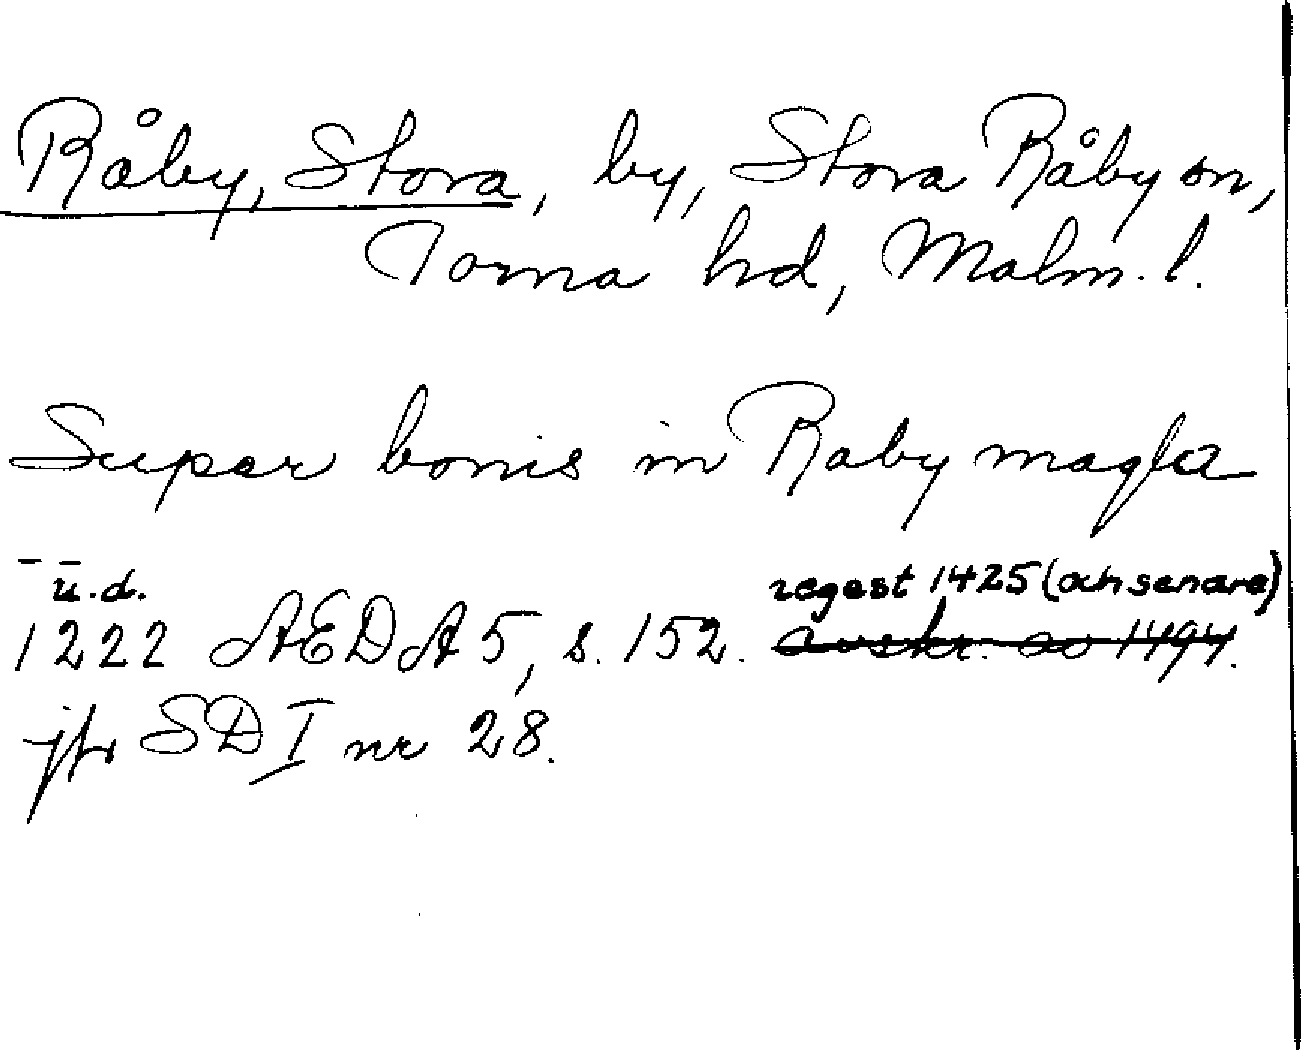 Råby, Stora, by, Stora Råby sn,
Torna hd, Malm. l.
Super bonis in Raby magla
– u.d. regest 1425 (och senare)
1222 AEDA 5, s. 152. avskr. av 1494.
jfr SD I nr 28.